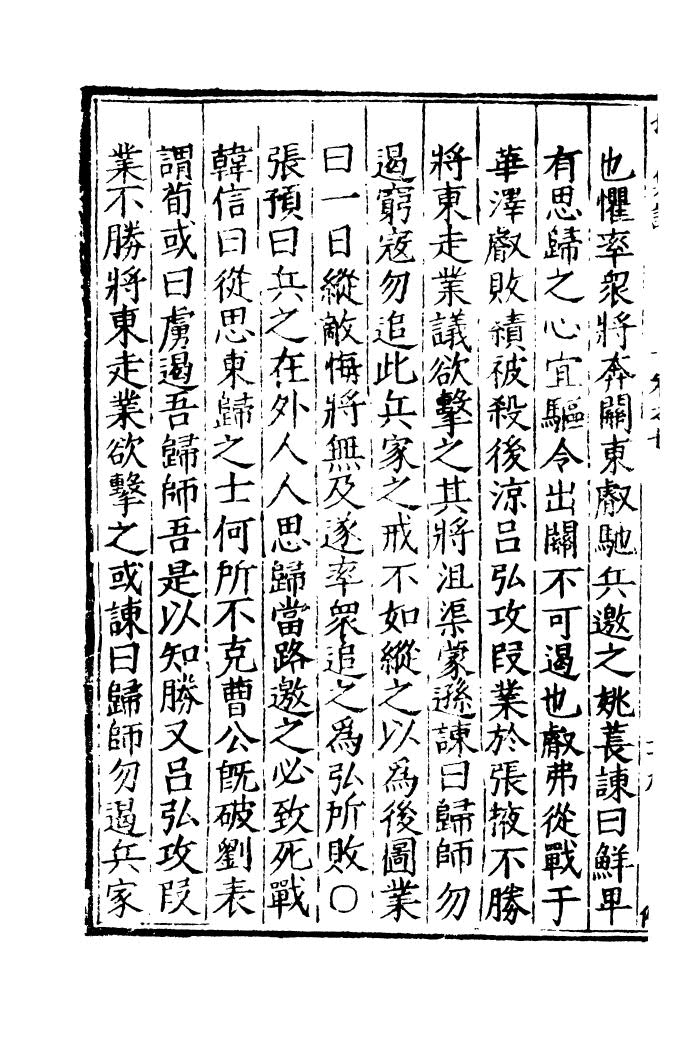 也懼率眾將奔關東叡馳兵邀之姚萇諫曰鮮卑
有思歸之心宜驅令出關不可遏也叡弗從戰于
華澤叡敗績被殺後涼呂弘攻段業於張掖不勝
將東走業議欲擊之其將沮渠蒙遜諫曰歸師勿
遏窮寇勿追此兵家之戒不如縱之以為後圖業
曰一日縱敵悔將無及遂率眾追之為弘所敗○
張預曰兵之在外人人思歸當路邀之必致死戰
韓信曰從思東歸之士何所不克曹公既破劉表
謂荀或曰虜遏吾歸師吾是以知勝又呂弘攻段
業不勝將東走業欲擊之或諫曰歸師勿遏兵家